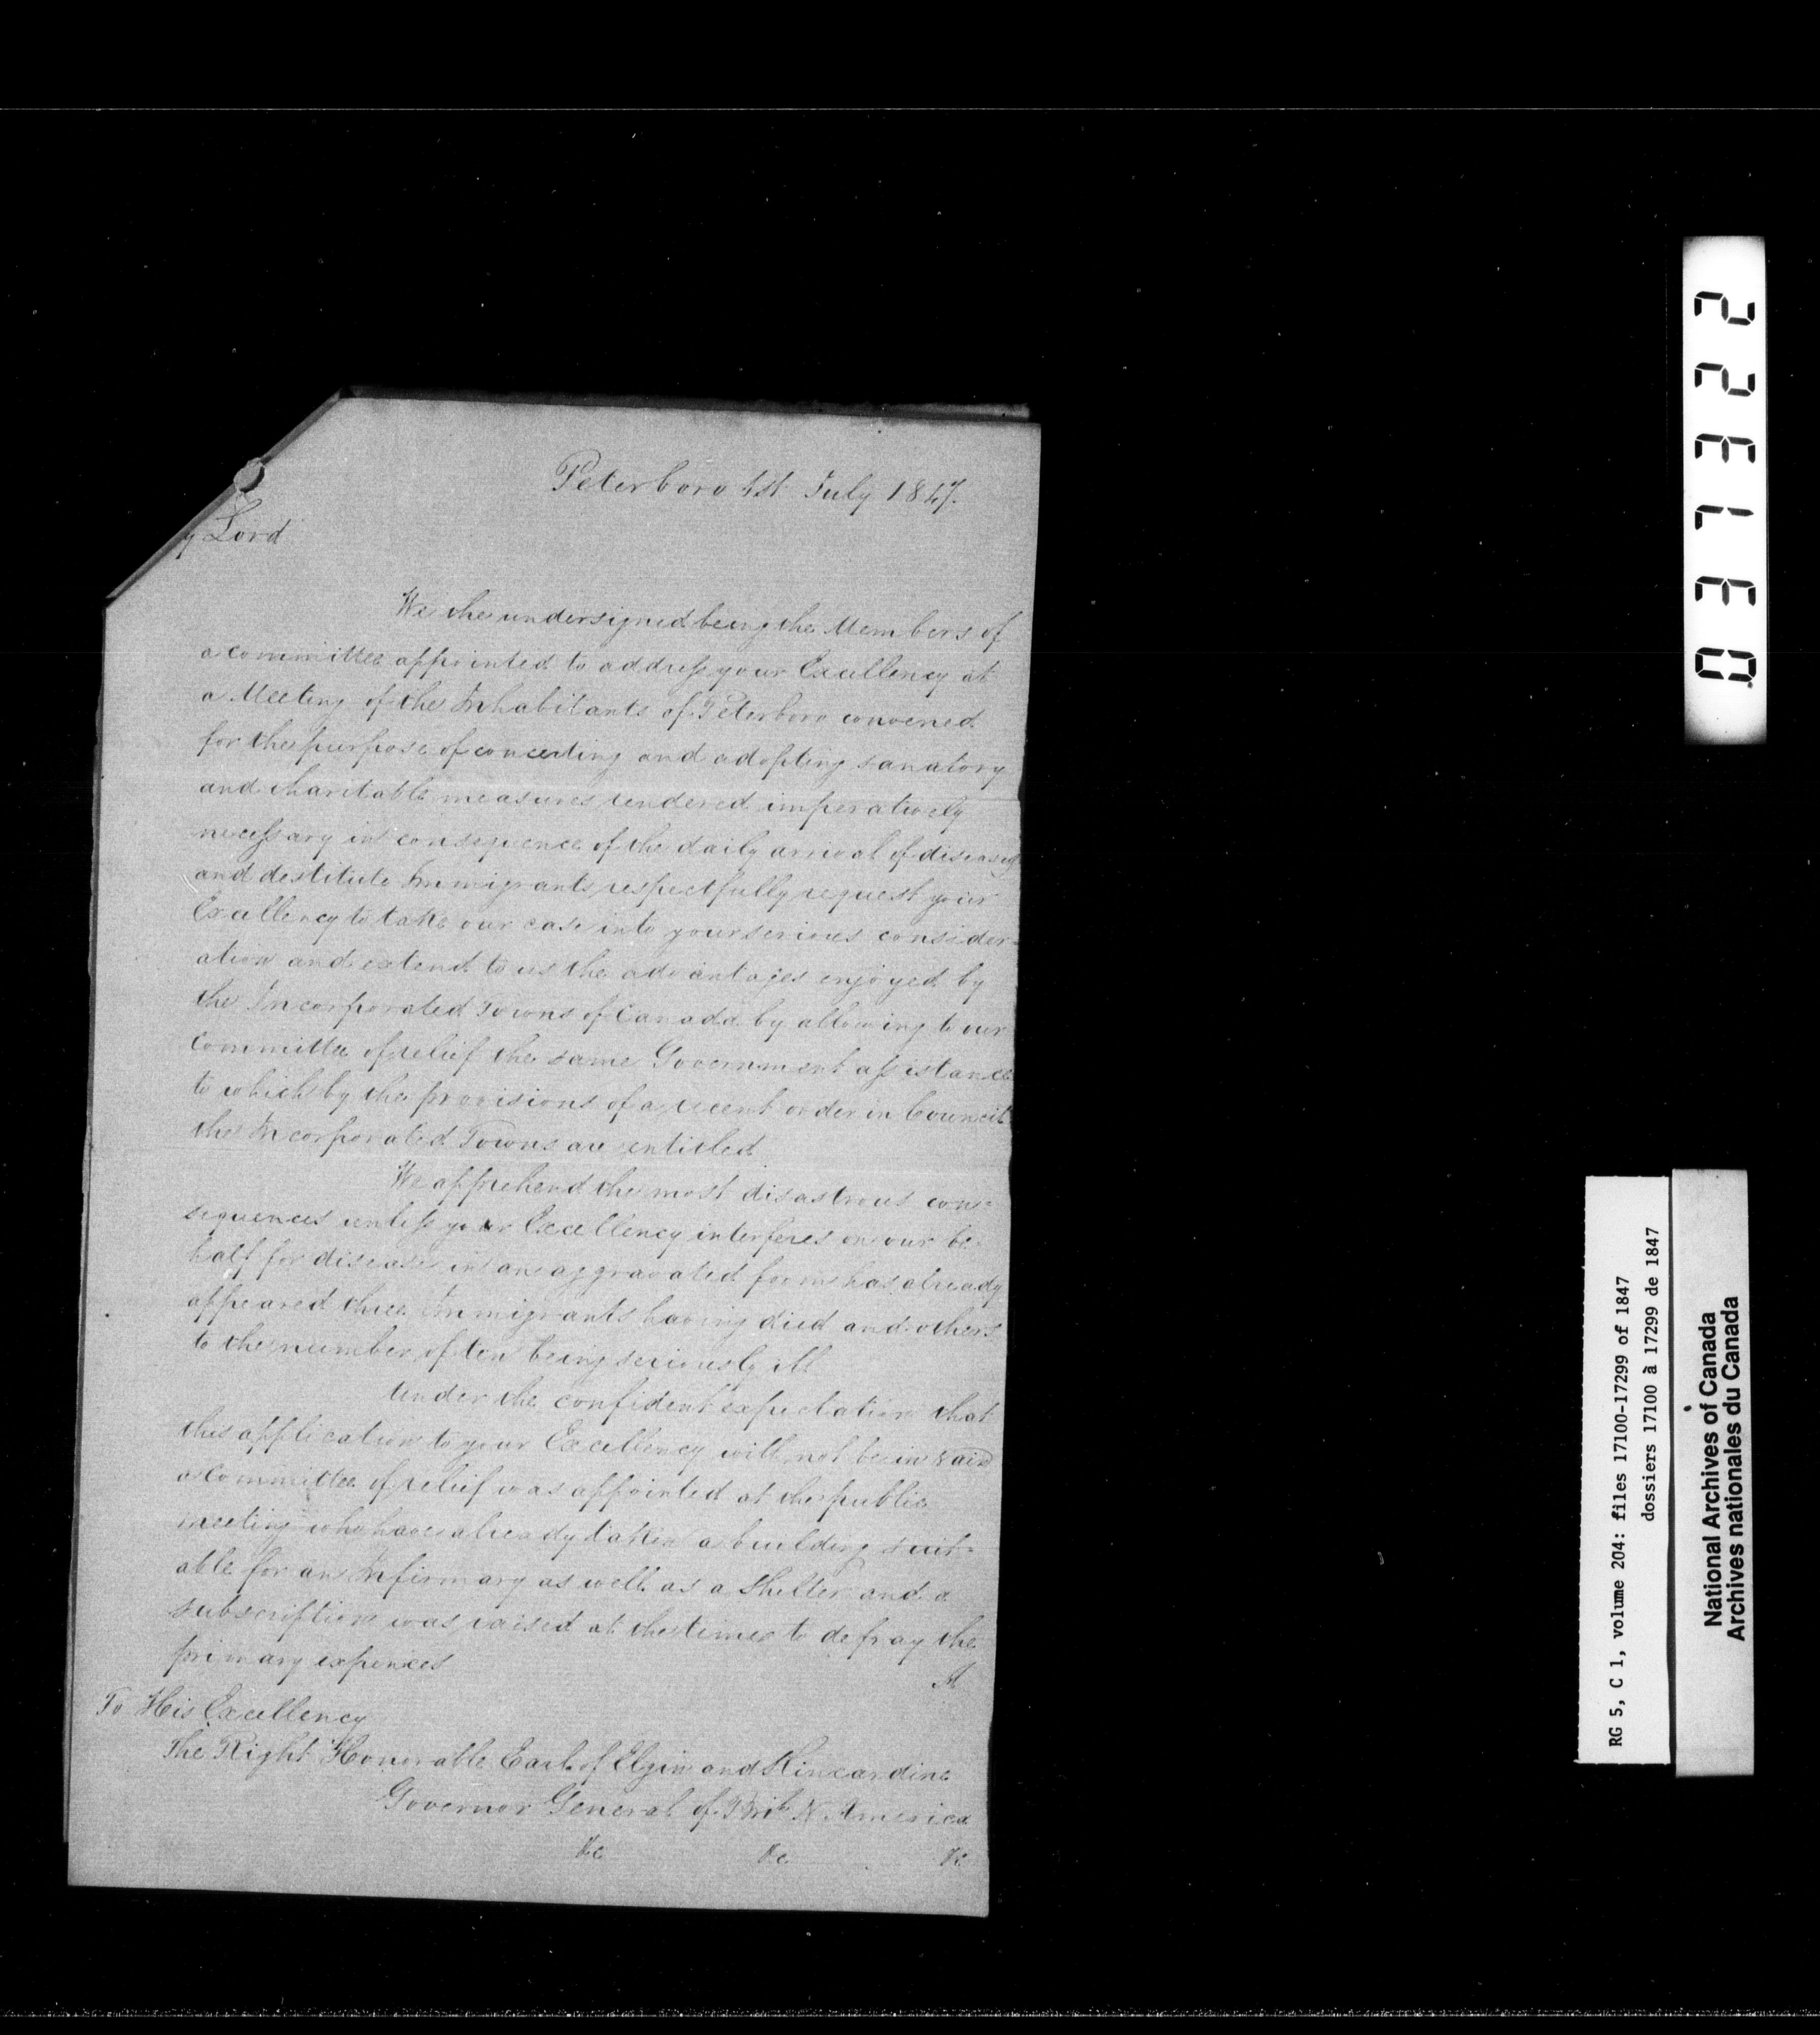 Peterboro 1st July 1847.
y Lord
We the undersigned being the Members of
a committee appointed to address your Excellency at
a Meeting of the Inhabitants of Peterboro convened
for the purpose of concerting and adopting sanatory
and charitable measures rendered imperatively
necessary in consequence of the daily arrival of diseased
and destitute Immigrants respectfully request your
Excellency to take our case into your serious consider-
ation and extend to us the advantages enjoyed by
the Incorporated Towns of Canada by allowing to our
Committee of relief the same Government assistance
to which by the provisions of a recent order in Council
the Incorporated Towns are entitled
We apprehend the most disastrous con=
sequences unless your Excellency interferes on our be-
half for disease in an aggravated form has already
appeared three Immigrants having died and others
to the number of ten being seriously ill
Under the confident expectation that
this application to your Excellency will not be in vain
a Committee of relief was appointed at the public
meeting who have already taken a building suit=
able for an Infirmary as well as a Shelter and a
subscription was raised at the time to defray the
primary expences
A
To His Excellency
The Right Honorable Earl of Elgin and Kincardine
Governor General of Brith N. America
&c &c &c
223730
RG 5, C 1, volume 204: files 17100-17299 of 1847
dossiers 17100 à 17299 de 1847
National Archives of Canada
Archives nationales du Canada